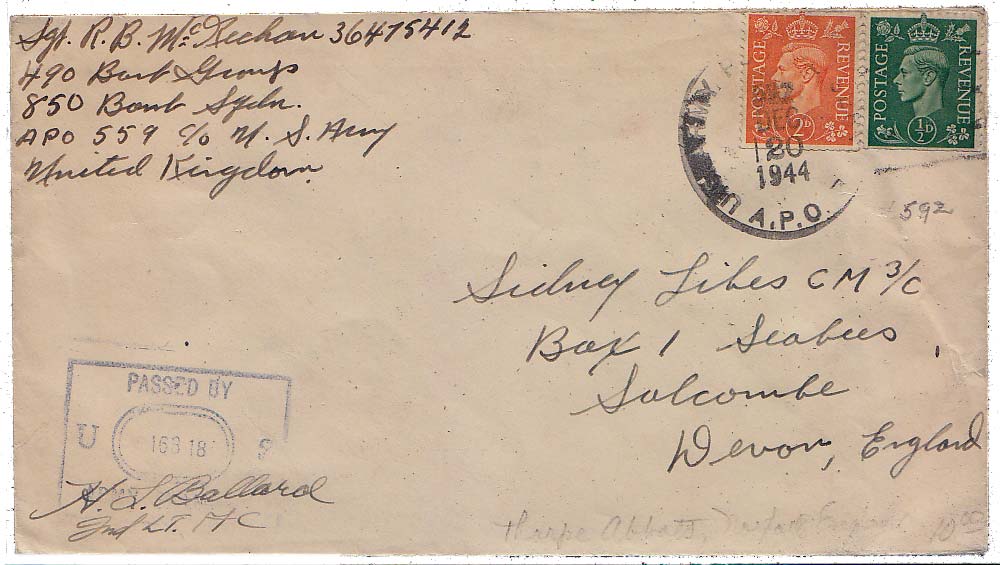 Sgt. R. B. McKechan 36475412
490 Bomb Group
850 Bomb Sqdn.
APO 559 c/o U. S. Army
United Kingdom.
POSTAGE REVENUE
2D
POSTAGE REVENUE
½D
U.S. ARMY
DEC
20
1944
A.P.O.
592
Sidney Libes CM 3/C
Box 1 Seabees,
Salcombe
Devon, England
PASSED BY
U S
16318
H. L. Ballard
2nd LT. MC
Thorpe Abbotts, England 10.00